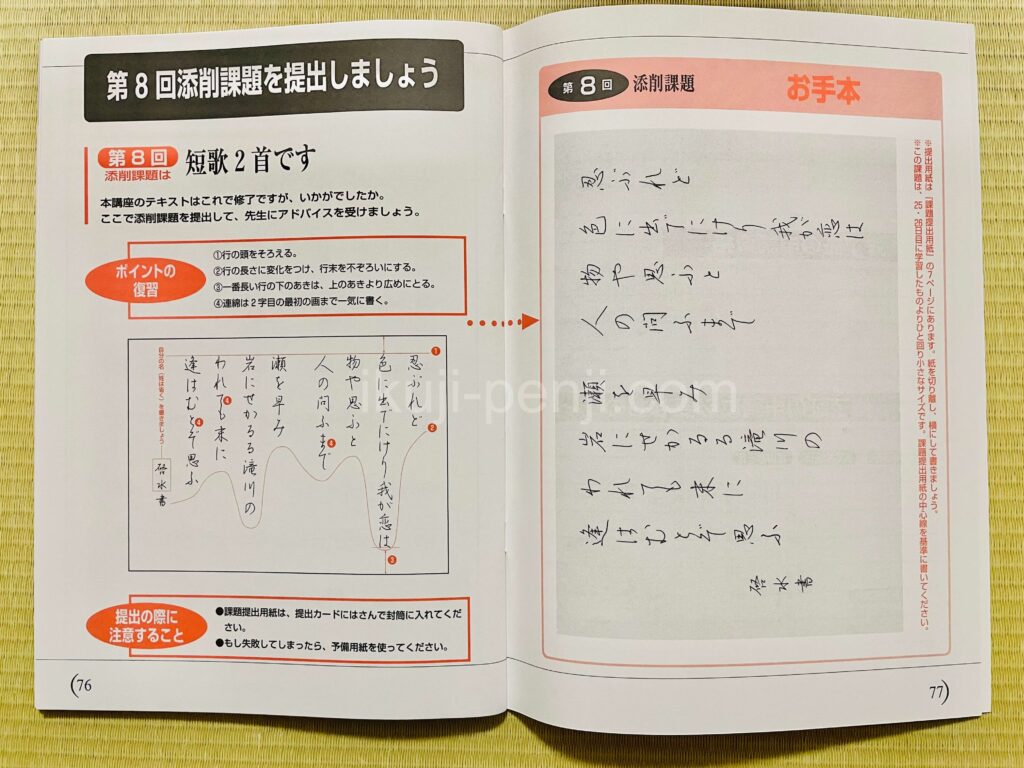 第8回添削課題を提出しましょう
第8回
添削課題は
短歌2首です
本講座のテキストはこれで修了ですが、いかがでしたか。
ここで添削課題を提出して、先生にアドバイスを受けましょう。
ポイントの
復習
①行の頭をそろえる。
②行の長さに変化をつけ、行末を不ぞろいにする。
③一番長い行の下のあきは、上のあきより広めにとる。
④連綿は2字目の最初の画まで一気に書く。
忍ぶれど
色に出でにけり我が恋は
物や思ふと
人の問ふまで
瀬を早み
岩にせかるる滝川の
われても末に
逢はむとぞ思ふ
啓水書
自分の名(姓は省く)を書きましょう
1
2
3
4
4
4
提出の際に
注意すること
●課題提出用紙は、提出カードにはさんで封筒に入れてくだ
さい。
●もし失敗してしまったら、予備用紙を使ってください。
76
第8回
添削課題
お手本
※提出用紙は「課題提出用紙」の7ページにあります。紙を切り離し、横にして書きましょう。
※この課題は、25・26日目に学習したものよりひと回り小さなサイズです。課題提出用紙の中心線を基準に書いてください。
忍ぶれど
色に出でにけり我が恋は
物や思ふと
人の問ふまで
瀬を早み
岩にせかるる滝川の
われても末に
逢はむとぞ思ふ
啓水書
77
ikuji-penji.com